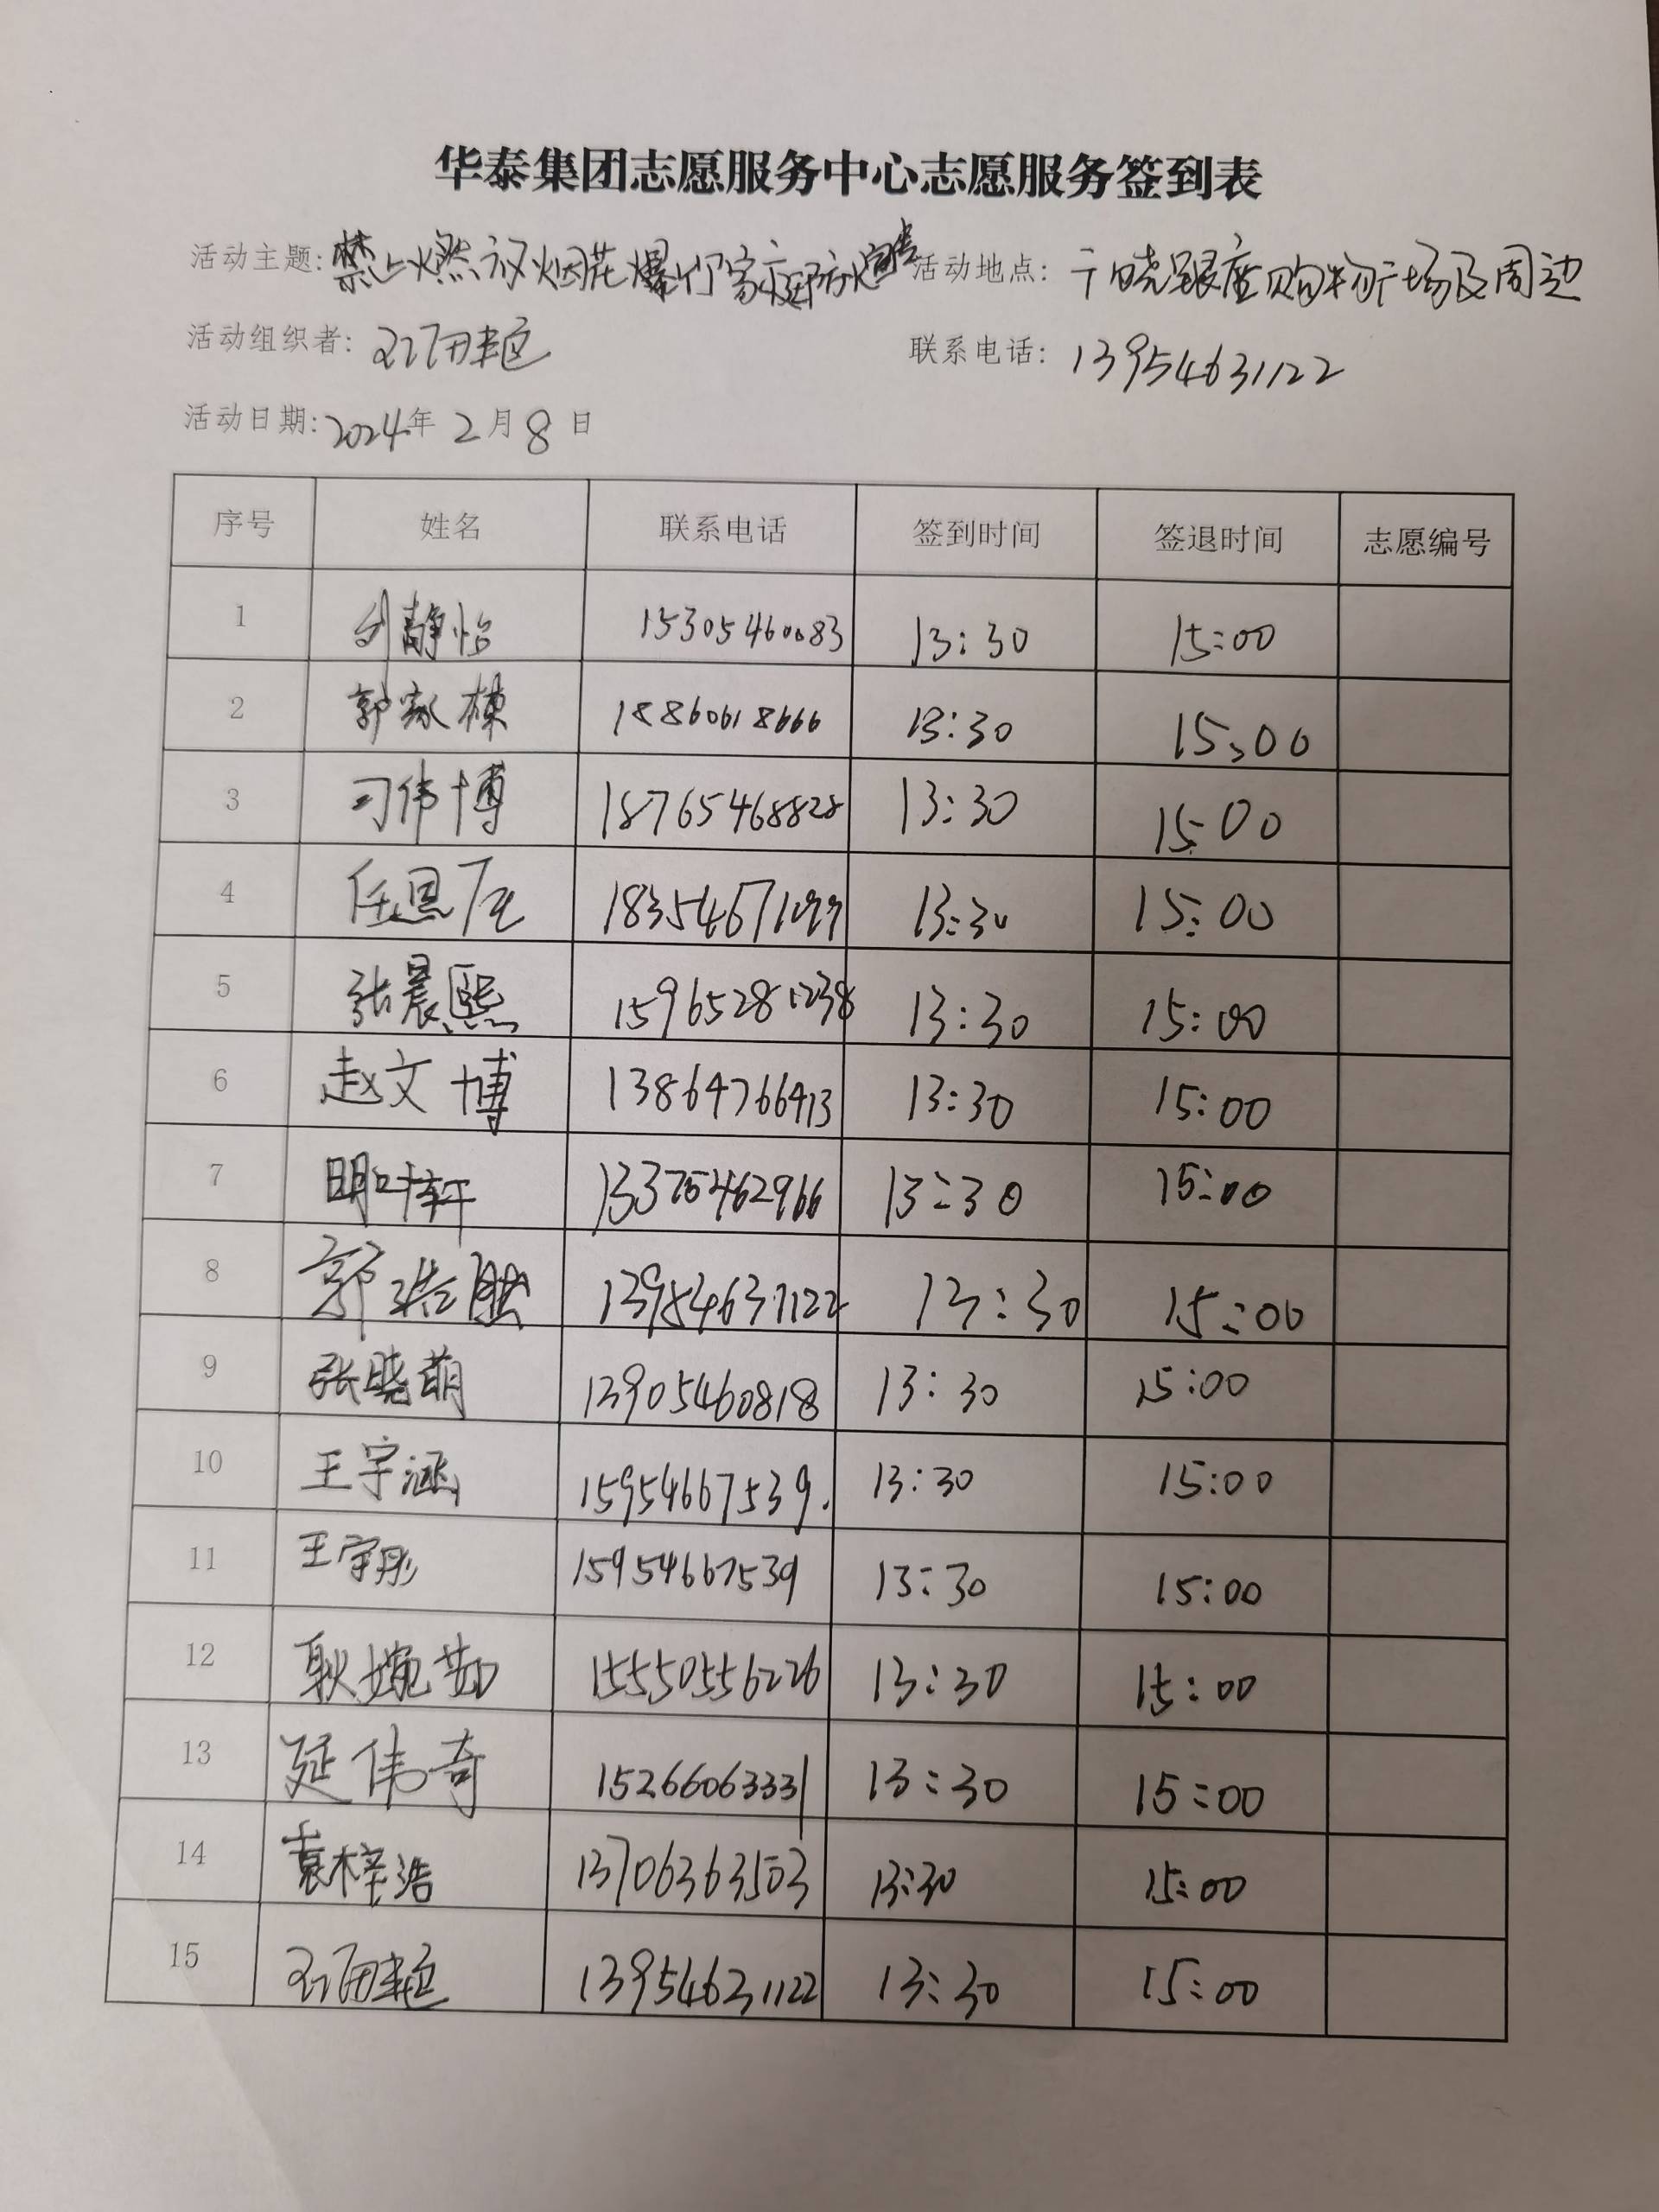 华泰集团志愿服务中心志愿服务签到表
活动主题:禁止燃放烟花爆竹家庭防火宣传 活动地点:千晓银座购物广场及周边
活动组织者: 联系电话:13954631122
活动日期:2024年2月8日
序号 姓名 联系电话 签到时间 签退时间 志愿编号
1 刘静怡 15305460083 13:30 15:00
2 郭家栋 18860618666 13:30 15:00
3 司伟博 18765468828 13:30 15:00
4 任恩 18354671099 13:30 15:00
5 张晨熙 15965281238 13:30 15:00
6 赵文博 13864766413 13:30 15:00
7 明叶轩 13375462966 13:30 15:00
8 郭浩然 13954631122 13:30 15:00
9 张晓萌 13905460818 13:30 15:00
10 王宇涵 15954667539. 13:30 15:00
11 王宇彤 15954667539 13:30 15:00
12 耿婉茹 15550556226 13:30 15:00
13 延伟奇 15266063331 13:30 15:00
14 袁梓浩 13706363503 13:30 15:00
15 13954631122 13:30 15:00